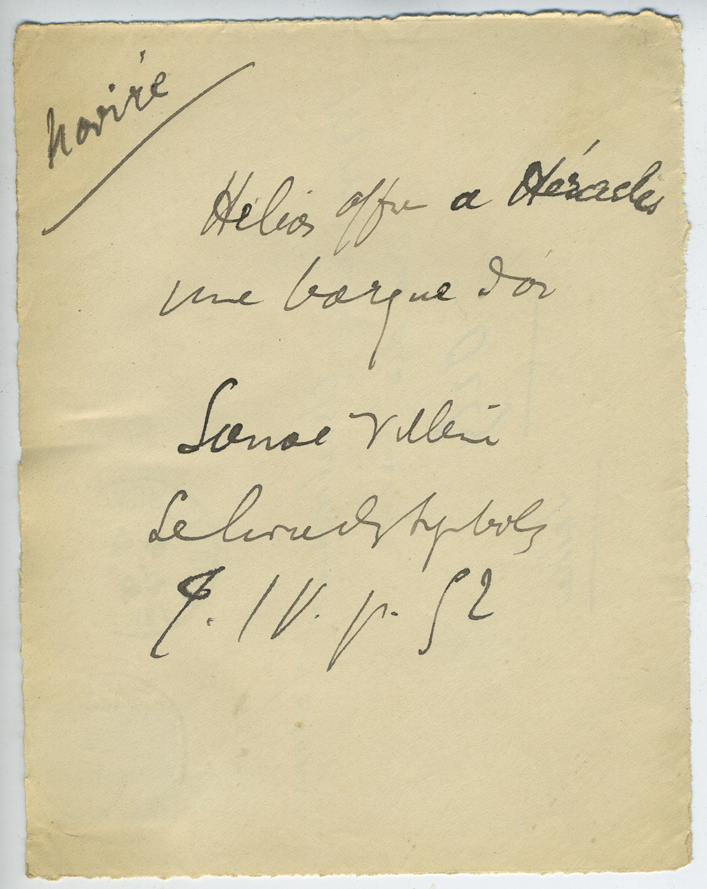 Navire
Hélios offre a Héraclès
une barque d'or
Le livre des symboles
T. IV. p. 52